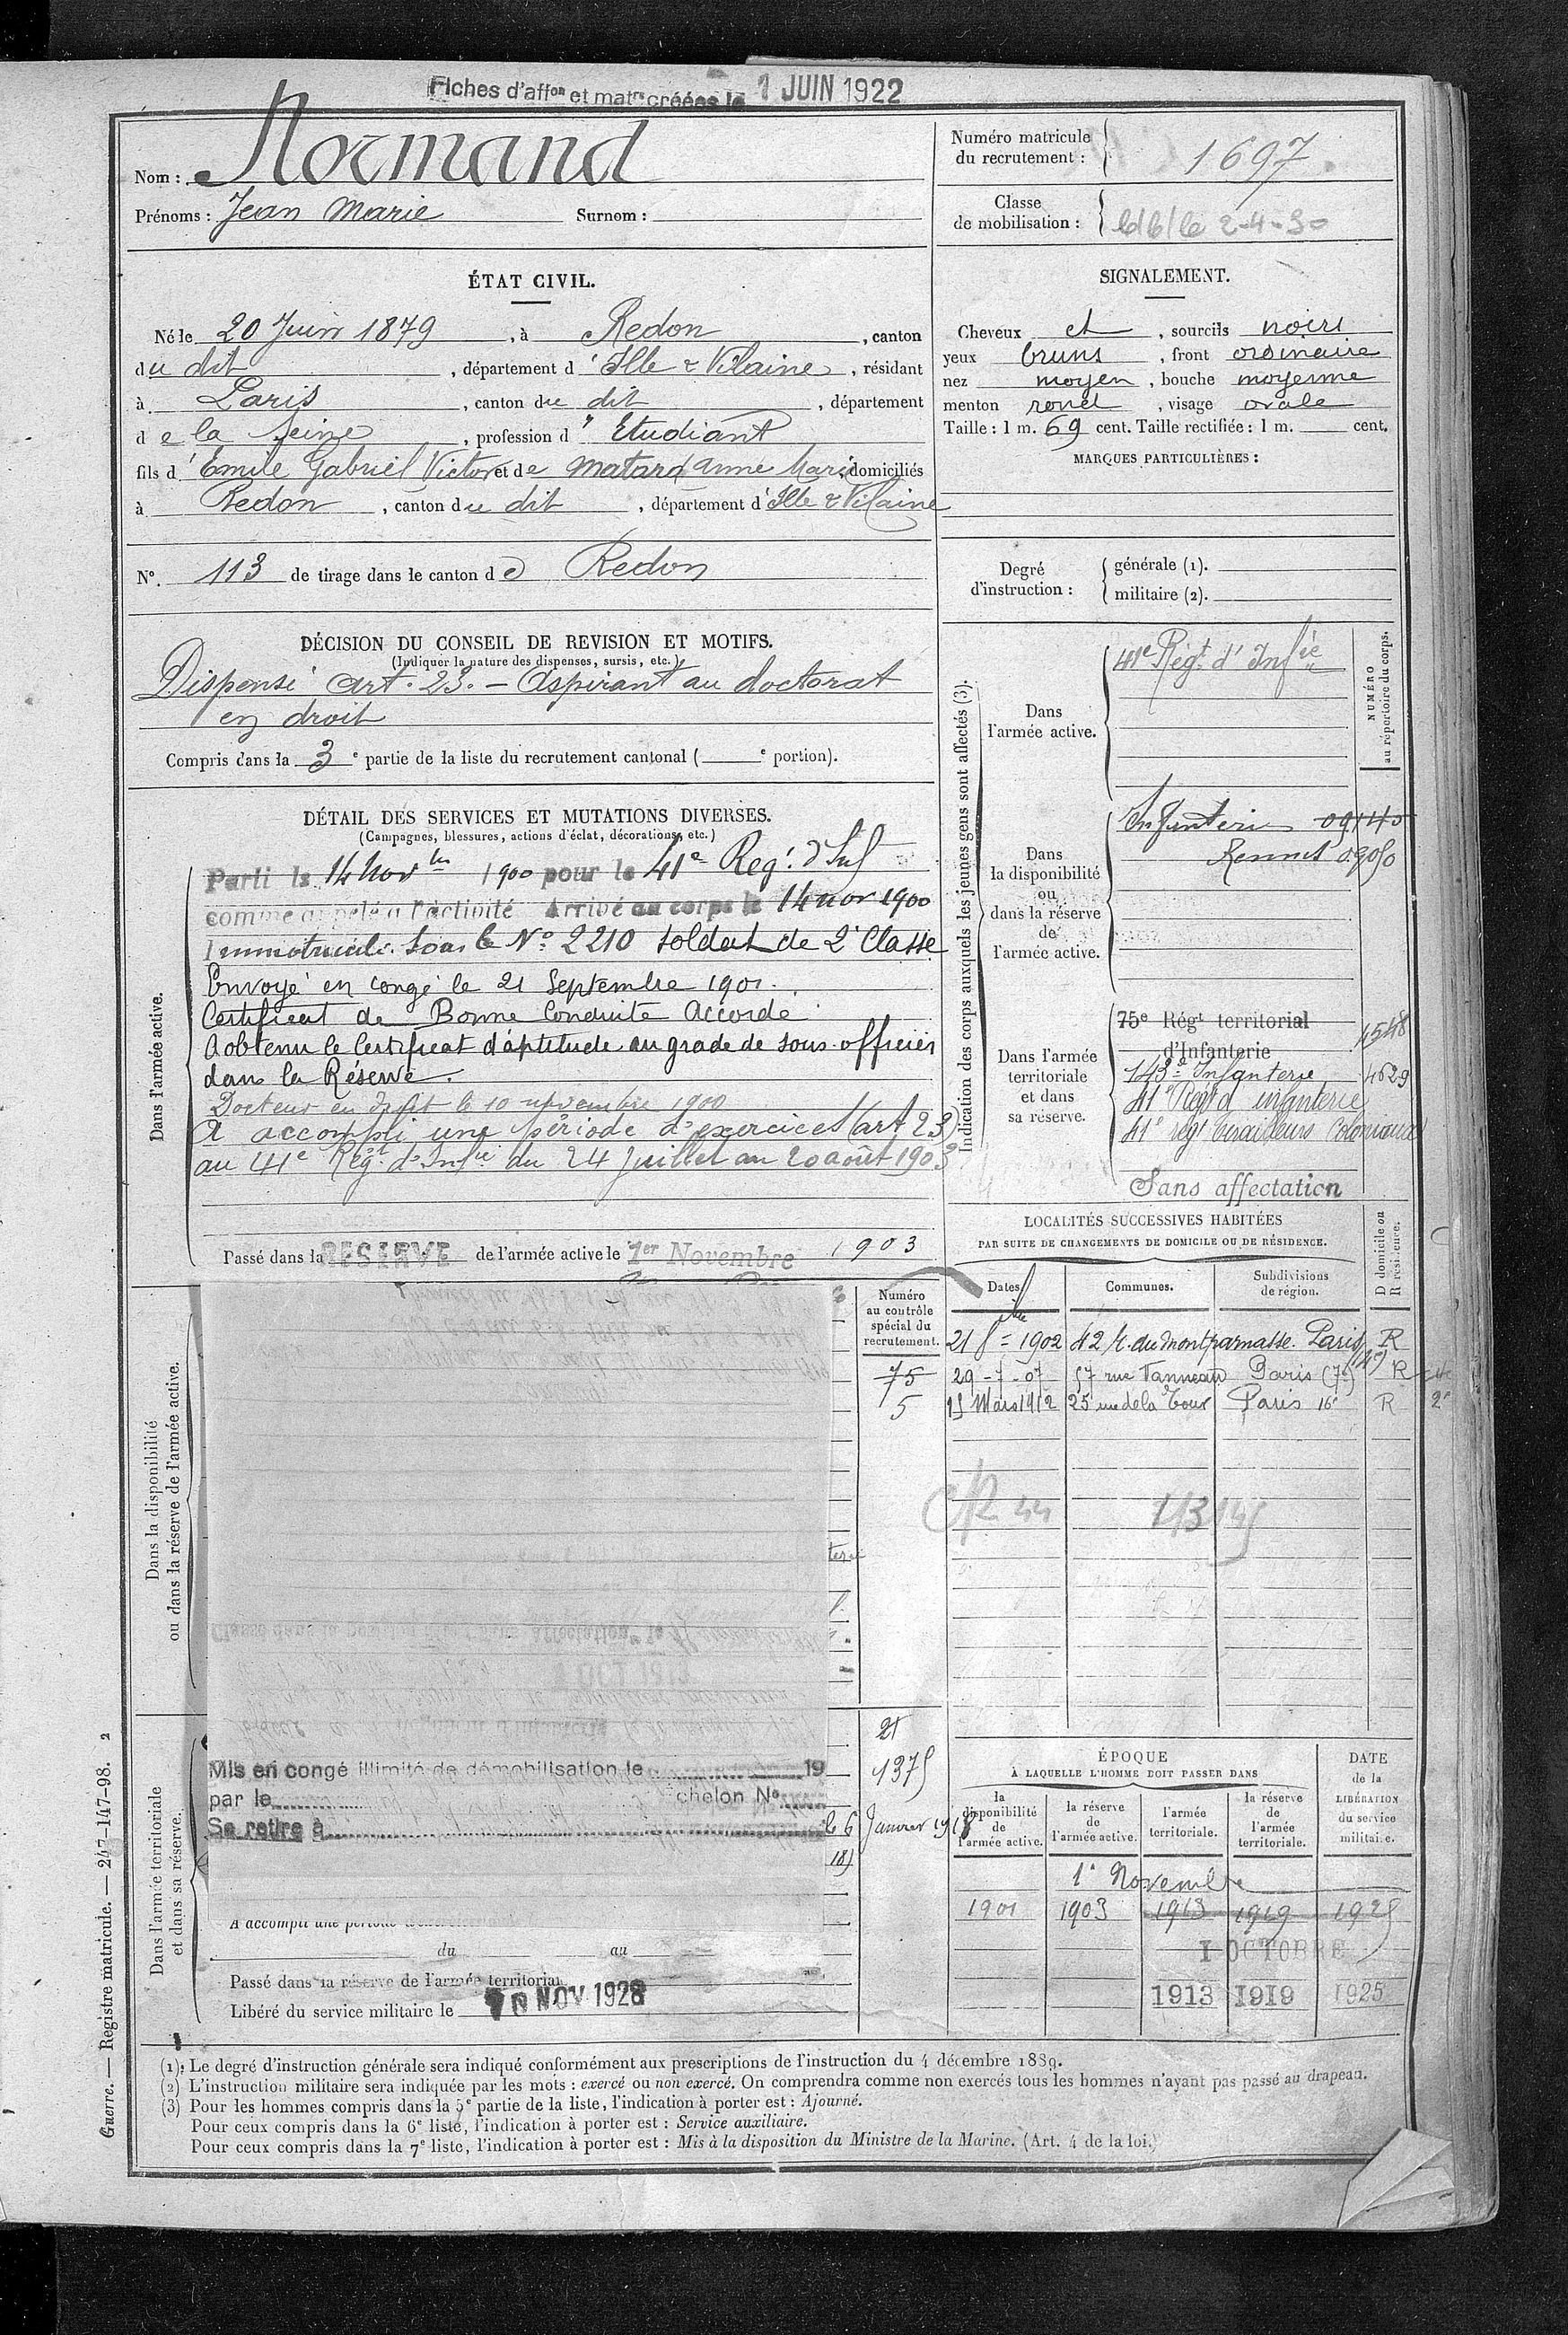 Fiches d'affon et matre créées le 1 JUIN 1922
Nom : Normand
Prénoms : Jean Marie Surnom :
Numéro matricule du recrutement : 1697
Classe de mobilisation :
ÉTAT CIVIL.
Né le 20 Juin 1879, à Redon, canton
du dit, département d'Ille & Vilaine, résidant
à Paris, canton du dit, département
de la Seine, profession d'' Etudiant
fils d'Emile Gabriel Victor et de Matard Anne Marie, domiciliés
à Redon, canton du dit, département d'Ille & Vilaine
N° 113 de tirage dans le canton de Redon
SIGNALEMENT.
Cheveux et, sourcils noirs
yeux bruns, front ordinaire
nez moyen, bouche moyenne
menton rond, visage ovale
Taille : 1 m. 69 cent. Taille rectifiée : 1 m. cent.
MARQUES PARTICULIÈRES :
Degré d'instruction : générale (1).
militaire (2).
DÉCISION DU CONSEIL DE REVISION ET MOTIFS.
(Indiquer la nature des dispenses, sursis, etc.)
Dispensé Art. 23. - Aspirant au doctorat
en droit
Compris dans la 3e partie de la liste du recrutement cantonal ( e portion).
DÉTAIL DES SERVICES ET MUTATIONS DIVERSES.
(Campagnes, blessures, actions d'éclat, décorations, etc.)
Dans l'armée active.
Parti le 14 Novbre 1900 pour le 41e Régt d'Inf
comme appelé à l'activité Arrivé au corps le 14 nov 1900
Immatriculé sous le N° 2210 soldat de 2e Classe
Envoyé en congé le 21 Septembre 1901.
Certificat de Bonne Conduite Accordé
A obtenu le Certificat d'aptitude au grade de sous-officier
dans la Réserve.
Docteur en droit le 10 novembre 1900
A accompli une période d'exercices (art 23)
au 41e Régt d'Infie du 24 Juillet au 20 août 1903
Passé dans la RESERVE de l'armée active le 1er Novembre 1903
Indication des corps auxquels les jeunes gens sont affectés (3).
NUMÉRO au répertoire du corps.
Dans l'armée active.
41e Régt d'Infie
Dans la disponibilité ou dans la réserve de l'armée active.
Infanterie
Rennes 09050
Dans l'armée territoriale et dans sa réserve.
75e Régt territorial
d'Infanterie
143e Infanterie 4629
41e Régt d'infanterie
41e régt tirailleurs Coloniaux
Sans affectation
LOCALITÉS SUCCESSIVES HABITÉES
PAR SUITE DE CHANGEMENTS DE DOMICILE OU DE RÉSIDENCE.
Dates Communes. Subdivisions de région. D domicile ou R résidence.
1902 42 r. du Montparnasse. Paris R
29-7-07 57 rue Vanneau Paris (7e) R
15 Mars 1912 25 rue de la Tour Paris 16e R
Dans la disponibilité
ou dans la réserve de l'armée active.
Numéro au contrôle spécial du recrutement.
75
5
Dans l'armée territoriale
et dans sa réserve.
21
1375
Mis en congé illimité de démobilisation le 19
par le échelon N°
Se retire à
le 6 Janvier 1918
18)
du au
Passé dans la réserve de l'armée territoriale
Libéré du service militaire le 10 NOV 1928
ÉPOQUE
À LAQUELLE L'HOMME DOIT PASSER DANS
la disponibilité de l'armée active. la réserve de l'armée active. l'armée territoriale. la réserve de l'armée territoriale. DATE de la LIBÉRATION du service militaire.
1er Novembre
1901 1903 1913 1919 1925
1 OCTOBRE
1913 1919 1925
(1) Le degré d'instruction générale sera indiqué conformément aux prescriptions de l'instruction du 4 décembre 1889.
(2) L'instruction militaire sera indiquée par les mots : exercé ou non exercé. On comprendra comme non exercés tous les hommes n'ayant pas passé au drapeau.
(3) Pour les hommes compris dans la 5e partie de la liste, l'indication à porter est : Ajourné.
Pour ceux compris dans la 6e liste, l'indication à porter est : Service auxiliaire.
Pour ceux compris dans la 7e liste, l'indication à porter est : Mis à la disposition du Ministre de la Marine. (Art. 4 de la loi.)
Guerre. — Registre matricule. — 247-147-98. 2